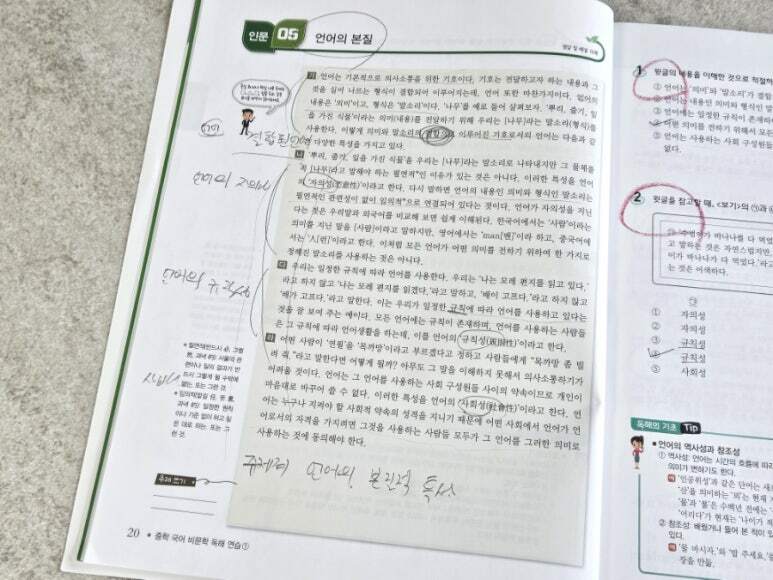 인문 05 언어의 본질
가 언어는 기본적으로 의사소통을 위한 기호이다. 기호는 전달하고자 하는 내용과 그
것을 실어 나르는 형식이 결합되어 이루어지는데, 언어 또한 마찬가지이다. 언어의
내용은 ‘의미’이고, 형식은 ‘말소리’이다. ‘나무’를 예로 들어 살펴보자. ‘뿌리, 줄기, 잎
을 가진 식물’이라는 의미(내용)를 전달하기 위해 우리는 [나무]라는 말소리(형식)를
사용한다. 이렇게 의미와 말소리의 결합으로 이루어진 기호로서의 언어는 다음과 같
은 다양한 특성을 가지고 있다.
결합된 언어
나 ‘뿌리, 줄기, 잎을 가진 식물’을 우리는 [나무]라는 말소리로 나타내지만 그 물체를
꼭 [나무]라고 말해야 하는 필연적인 이유가 있는 것은 아니다. 이러한 특성을 언어
의 ‘자의성(恣意性)’이라고 한다. 다시 말하면 언어의 내용인 의미와 형식인 말소리는
필연적인 관련성이 없이 임의적으로 연결되어 있다는 것이다. 언어가 자의성을 지닌
다는 것은 우리말과 외국어를 비교해 보면 쉽게 이해된다. 한국어에서는 ‘사람’이라는
의미를 지닌 말을 [사람]이라고 말하지만, 영어에서는 ‘man[맨]’이라 하고, 중국어에
서는 ‘人[런]’이라고 한다. 이처럼 모든 언어가 어떤 의미를 전하기 위하여 한 가지로
정해진 말소리를 사용하는 것은 아니다.
언어의 자의성
다 우리는 일정한 규칙에 따라 언어를 사용한다. 우리는 ‘나는 모레 편지를 읽고 있다.’
라고 하지 않고 ‘나는 모레 편지를 읽겠다.’라고 말하고, ‘배이 고프다.’라고 하지 않고
‘배가 고프다.’라고 말한다. 이는 우리가 일정한 규칙에 따라 언어를 사용하고 있다는
것을 잘 보여 주는 예이다. 모든 언어에는 규칙이 존재하며, 언어를 사용하는 사람들
은 그 규칙에 따라 언어생활을 하는데, 이를 언어의 ‘규칙성(規則性)’이라고 한다.
언어의 규칙성
라 어떤 사람이 ‘연필’을 ‘목까망’이라고 부르겠다고 정하고 사람들에게 “목까망 좀 빌
려 줘.”라고 말한다면 어떻게 될까? 아무도 그 말을 이해하지 못해서 의사소통하기가
어려울 것이다. 언어는 그 언어를 사용하는 사회 구성원들 사이의 약속이므로 개인이
마음대로 바꾸어 쓸 수 없다. 이러한 특성을 언어의 ‘사회성(社會性)’이라고 한다. 언
어는 누구나 지켜야 할 사회적 약속의 성격을 지니기 때문에 어떤 사회에서 언어가 언
어로서의 자격을 가지려면 그것을 사용하는 사람들 모두가 그 언어를 그러한 의미로
사용하는 것에 동의해야 한다.
주제 쓰기
주제 언어의 본질적 특성
20 • 중학 국어 비문학 독해 연습①
1 윗글의 내용을 이해한 것으로 적절하
① 언어는 ‘의미’와 ‘말소리’가 결합
② 언어는 내용인 의미와 형식인 말
③ 언어에는 일정한 규칙이 존재하
④ 어떤 의미를 전하기 위해서 모든
⑤ 언어는 사용하는 사회 구성원들
2 윗글을 참고할 때, <보기>의 ㉠과
① 자의성
② 자의성
③ 규칙성
④ 규칙성
⑤ 사회성
독해의 기초 Tip
■ 언어의 역사성과 창조성
① 역사성: 언어는 시간의 흐름에 따라
의미가 변하기도 한다.